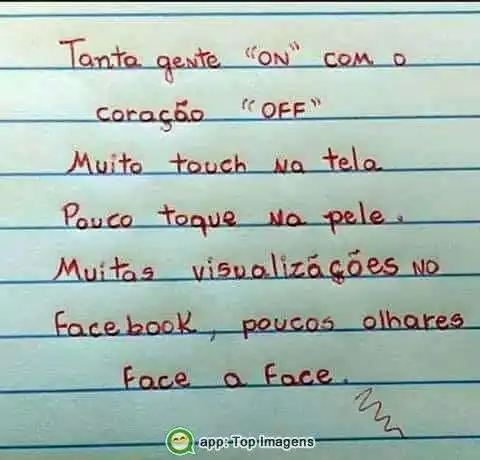 Tanta gente "ON" com o
coração "OFF"
Muito touch na tela
Pouco toque na pele.
Muitas visualizáções no
facebook, poucos olhares
face a face.
app: Top Imagens